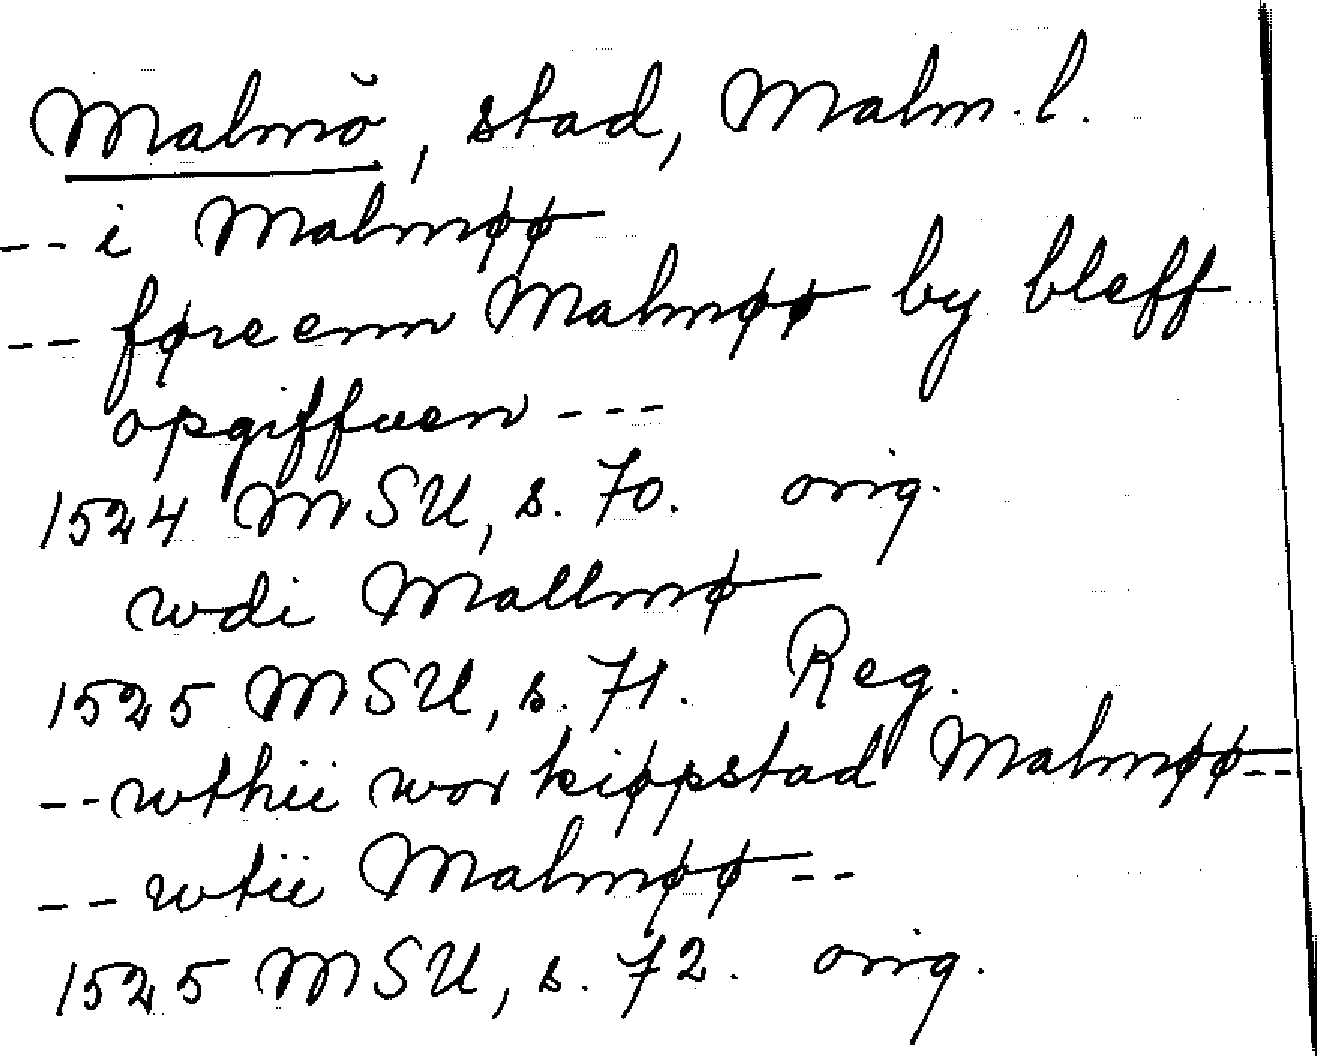 Malmö, stad, Malm. l.
-- i Malmøø
-- føreenn Malmøø by bleff
opgiffuen ---
1524 MSU, s. 70. orig.
wdi Mallmø
1525 MSU, s. 71. Reg.
-- wthii wor kiøpstad Malmøø --
-- wtii Malmøø --
1525 MSU, s. 72. orig.